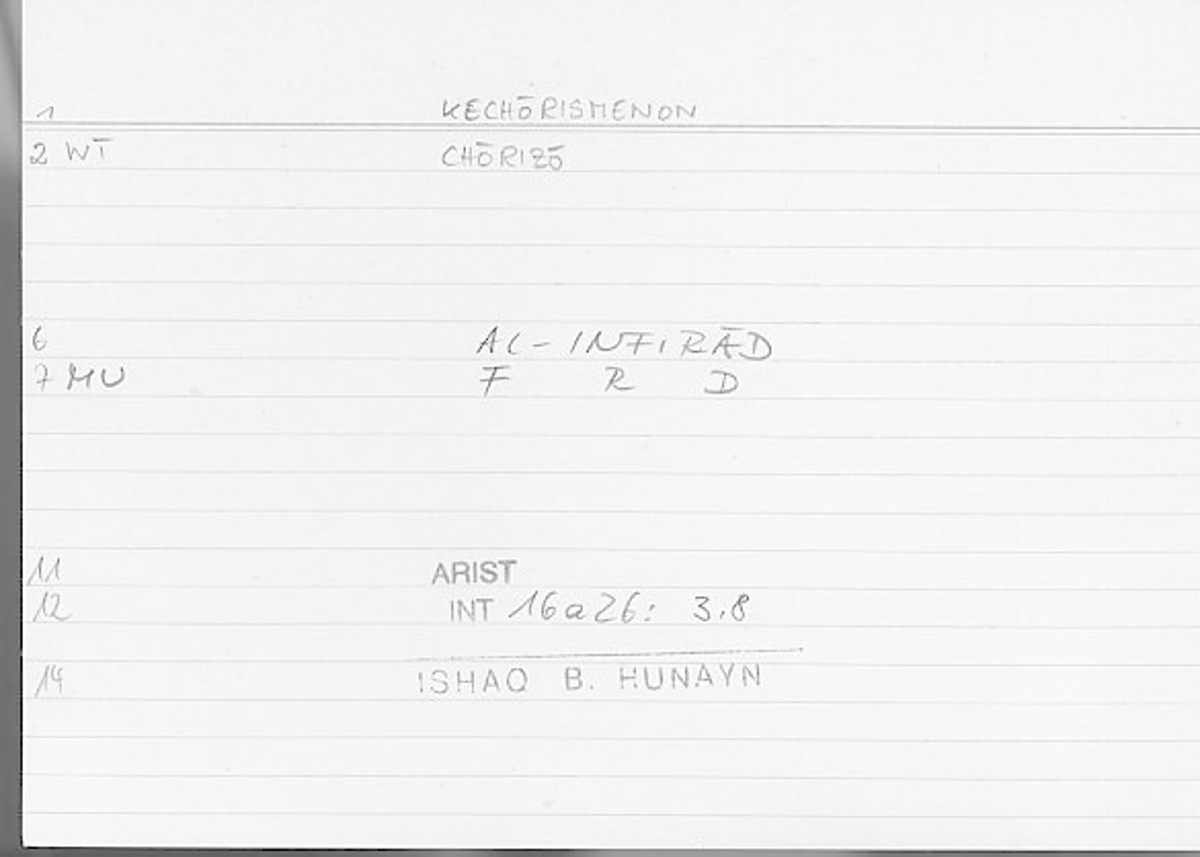 1 KECHŌRISMENON
2 WT CHŌRIZŌ
6 AL-INFIRĀD
7 MU F R D
11 ARIST
12 INT 16a26: 3.8
14 ISHAQ B. HUNAYN